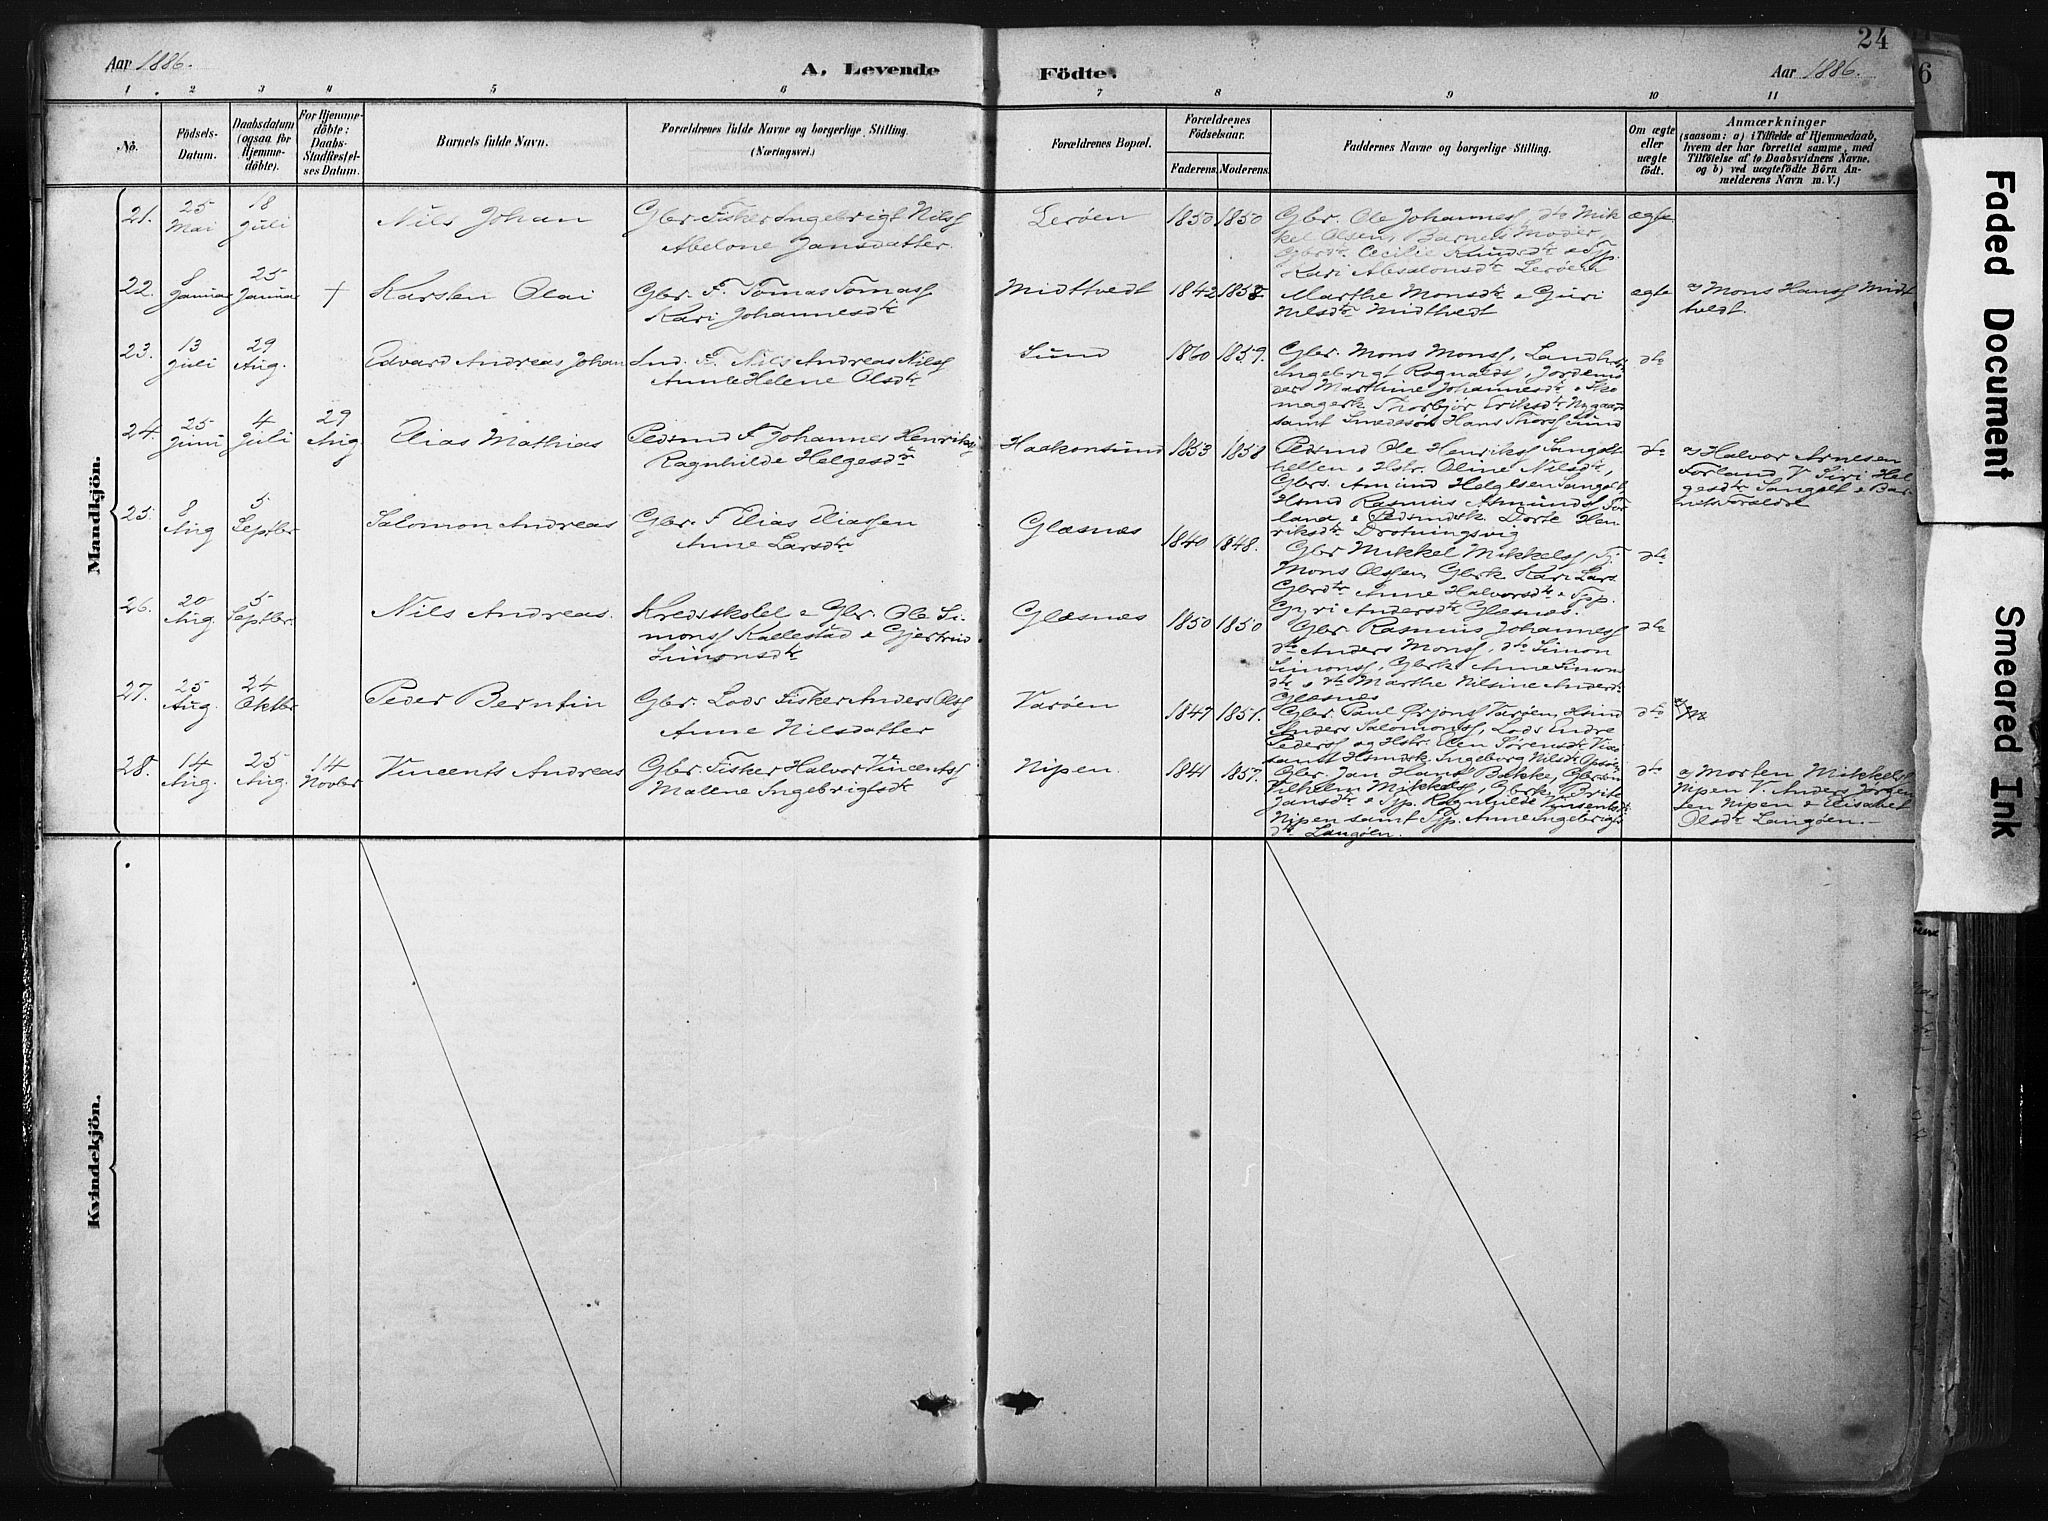 24
6
Aar 1886.
A. Levende Födte.
Aar 1886.
1 2 3 4 5 6 7 8 9 10 11
No.
Födsels-
Datum.
Daabsdatum
(ogsaa for
Hjemme-
döbte).
For Hjemme-
döbte:
Daabs-
Stadfæstel-
ses Datum.
Barnets fulde Navn.
Forældrenes fulde Navne og borgerlige Stilling.
(Næringsvei.)
Forældrenes Bopæl.
Forældrenes
Födselsaar.
Faderens.
Moderens.
Faddernes Navne og borgerlige Stilling.
Om ægte
eller
uægte
födt.
Anmærkninger
(saasom: a) i Tilfælde af Hjemmedaab,
hvem der har forrettet samme, med
Tilföielse af to Daabsvidners Navne.
og b) ved uægtefödte Börn An-
melderens Navn m. V.)
Mandkjön.
21.
25
Mai
18
Juli
Nils Johan
Gbr. Fisker Ingebrigt Nilss
Abelone Jansdatter.
Lerøen
1850
1850
Gbr. Ole Johanness, dto Mik-
kel Olsen, Barnets Moder,
Gbrdtr Cecilie Knudsdtr & Tjp.
Kari Absalonsdtr Lerøen
ægte
22.
8
Januar
25
Januar
+
Karsten Olai
Gbr. F. Tomas Tomass
Kari Johannesdtr
Midttvedt
1842
1858
Marthe Monsdtr & Guri
Nilsdtr Midttvedt
ægte
a) Mons Hanss Midt
tvedt.
23.
13
Juli
29
Aug.
Edvard Andreas Johan
Ind. F. Nils Andreas Nilss
Anne Helene Olsdtr
Sund
1860
1859.
Gbr. Mons Monss, Landh.
Ingebrigt Rognalds, Jordemo
der Marthine Johannesdtr & Sko
magerk. Thorbjør Eriksdtr Nygaard
samt Smedssøn Hans Thorss Sund
dto
24.
25
Juni
4
Juli
29
Aug
Elias Mathias
Pedsmd F. Johannes Henrikss
Ragnhilde Helgesdtr
Haakonsund
1853
1858
Pedsmd Ole Henrikss Sangolt
hellen & Hstr. Oline Nilsdtr,
Gbrs. Amund Helgesen Sangolt
Hsmd Rasmus Asmundss For
land & Pedsmdsk. Dorte Hen
riksdtr Drotningsvig
dto
a) Halvor Arnesen
Forland V. Siri Hel
gesdtr Sangolt & Bar
nets Forældre
25.
8
Aug
5
Septbr
Salomon Andreas
Gbr. F. Elias Eliassen
Anne Larsdtr
Glæsnes
1840
1848.
Gbr. Mikkel Mikkelss, Tj.
Mons Olssen, Gbrk Kari Lars
Gbrdtr Anne Halvorsdtr & Tjp.
Guri Andersdtr Glæsnes.
dto
26.
20
Aug.
5
Septbr.
Nils Andreas.
Kredsskolel. & Gbr. Ole Si-
monss Kallestad & Gjertrud
Simonsdtr
Glæsnes
1850
1850
Gbr. Rasmus Johanness
dto Anders Monss, dto Simon
Simonss, Gbrk. Anne Simons
dtr & dto Marthe Nilsine Andersdtr
Glæsnes
dto
27.
25
Aug.
24
Oktbr
Peder Berntin
Gbr. Lods Fisker Anders Olss
Anne Nilsdatter
Varøen
1847
1851.
Gbr. Paul Ørjans Varøen, Hsmd
Anders Salomonss, Lods Endre
Peders og Hstr. Elen Sørensdtr
samt Hsmdsk. Ingeborg Nilsdtr
dto
28.
14
Aug.
25
Aug.
14
Novbr
Vincents Andreas
Gbr. Fisker Halvor Vincentss
Malene Ingebrigtsdtr
Nipen
1841
1857.
Gbr. Jan Hanss Bakke, Gbrssøn
Vilhelm Mikkelss, Gbrk. Brite
Jansdtr & Tjp. Ragnhilde Vinsentsdtr
Nipen samt Tjp. Anne Ingebrigts
dtr Langøen.
dto
a) Morten Mikkelss
Nipen V. Anders Jørgen
sen Nipen & Elisabet
Olsdtr Langøen.
Kvindekjön.
Faded Document
Smeared Ink